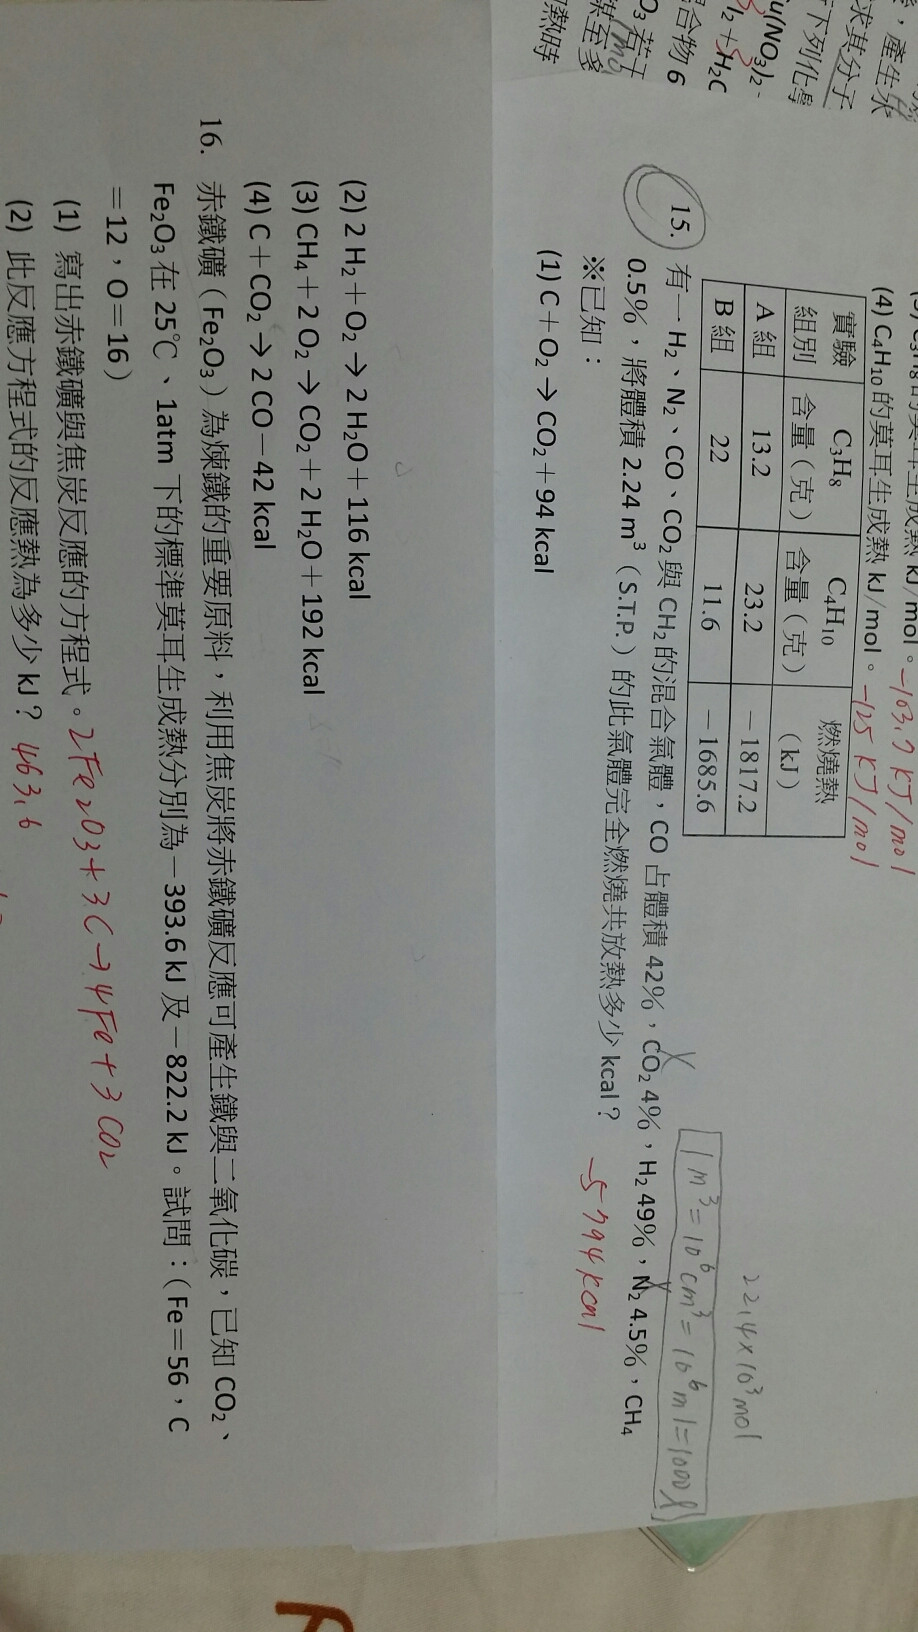 (4) C₄H₁₀ 的莫耳生成熱 kJ/mol。 -125 kJ/mol
-103.7 kJ/mol
實驗組別 C₃H₈含量(克) C₄H₁₀含量(克) 燃燒熱(kJ)
A 組 13.2 23.2 -1817.2
B 組 22 11.6 -1685.6
22.4×10³mol
1m³=10⁶cm³=10⁶ml=1000l
15. 有一 H₂、N₂、CO、CO₂與 CH₂的混合氣體,CO 占體積 42%,CO₂ 4%,H₂ 49%,N₂ 4.5%,CH₄
0.5%,將體積 2.24 m³(S.T.P.)的此氣體完全燃燒共放熱多少 kcal? -5794kcal
※已知:
(1) C+O₂→CO₂+94 kcal
(2) 2 H₂+O₂→2 H₂O+116 kcal
(3) CH₄+2 O₂→CO₂+2 H₂O+192 kcal
(4) C+CO₂→2 CO-42 kcal
16. 赤鐵礦(Fe₂O₃)為煉鐵的重要原料,利用焦炭將赤鐵礦反應可產生鐵與二氧化碳,已知 CO₂、
Fe₂O₃在 25℃、1atm 下的標準莫耳生成熱分別為-393.6 kJ 及-822.2 kJ。試問:(Fe=56,C
=12,O=16)
(1) 寫出赤鐵礦與焦炭反應的方程式。 2Fe₂O₃+3C→4Fe+3CO₂
(2) 此反應方程式的反應熱為多少 kJ? 463.6